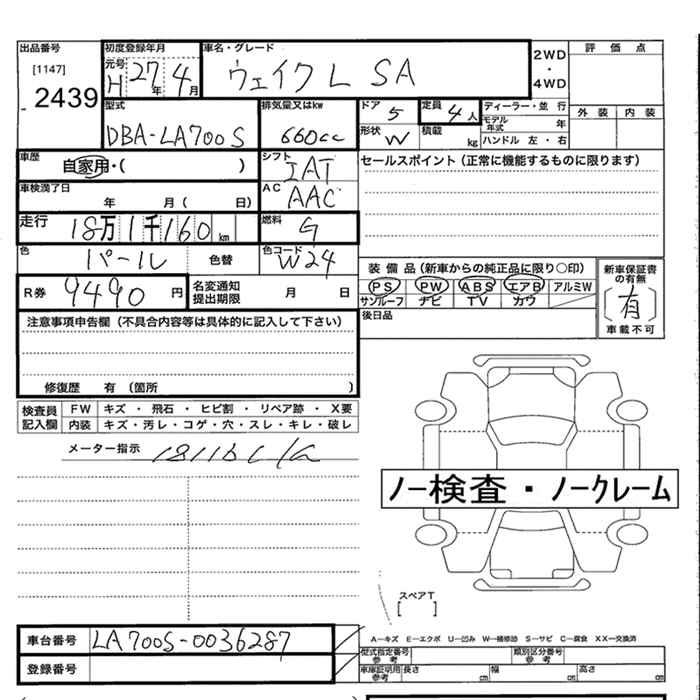 出品番号
[1147]
2439
初度登録年月
元号
H 27年 4月
車名・グレード
ウェイク L SA
2WD
・
4WD
評価点
外装 内装
型式
DBA-LA700S
排気量又はkw
660cc
ドア 5
形状 W
定員 4人
積載 kg
ディーラー・並行
モデル年式 年
ハンドル 左・右
車歴
自家用・( )
シフト
IAT
セールスポイント (正常に機能するものに限ります)
車検満了日
年 月( 日)
AC
AAC
走行
18万1千160 km
燃料
G
色
パール
色替
色コード
W24
R券 9490 円
名変通知
提出期限
月 日
装備品 (新車からの純正品に限り○印)
PS PW ABS エアB アルミW
サンルーフ ナビ TV カワ
新車保証書
の有無
(有)
車載不可
後日品
注意事項申告欄 (不具合内容等は具体的に記入して下さい)
修復歴 有 (箇所 )
検査員
記入欄
FW キズ・飛石・ヒビ割・リペア跡・X要
内装 キズ・汚レ・コゲ・穴・スレ・キレ・破レ
メーター指示
ノー検査・ノークレーム
スペアT
[ ]
車台番号 LA700S-0036287
登録番号
A—キズ E—エクボ U—凹み W—補修跡 S—サビ C—腐食 XX—交換済
型式指定番号
参考
類別区分番号
参考
車庫証明用
参考
長さ cm 幅 cm 高さ cm